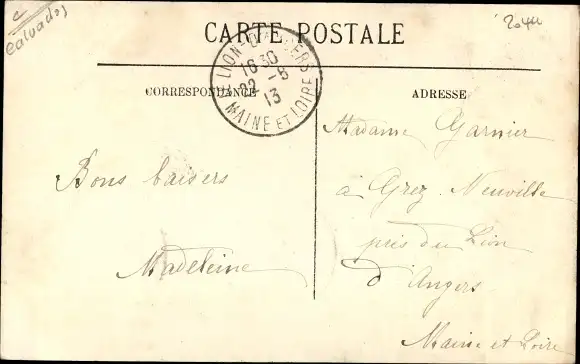 c
Calvados
2044
CARTE POSTALE
LION-D'ANGERS
16 30
22 -8
13
MAINE ET LOIRE
CORRESPONDANCE
ADRESSE
Bons baisers
Madeleine
Madame Garnier
à Grez Neuville
près du Lion
d'Angers
Maine et Loire